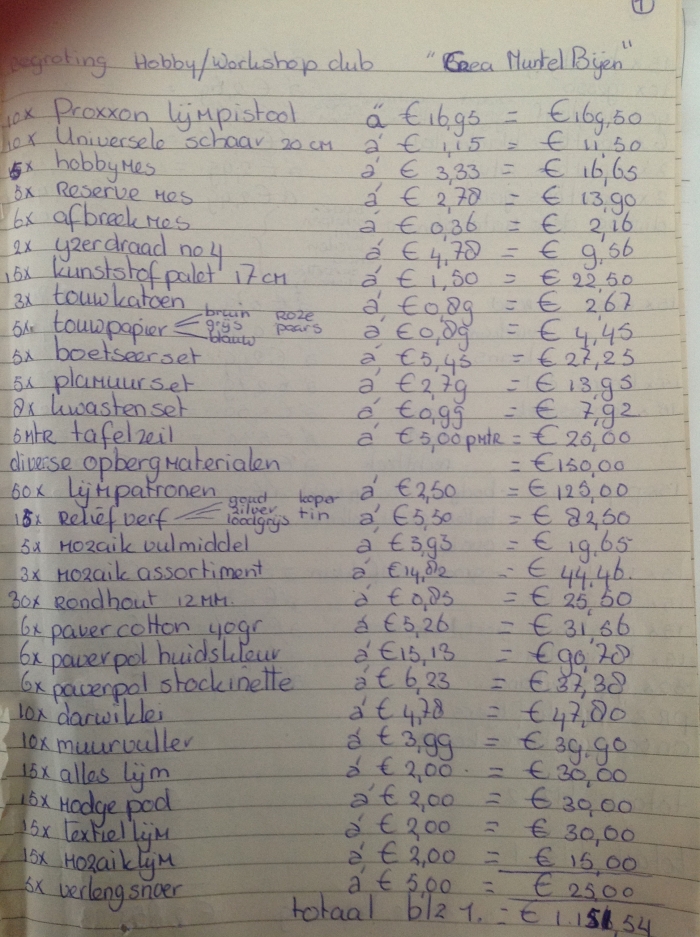 1
begroting Hobby/Workshop club "Crea Murtel Bijen"
10x Proxxon lijmpistool à € 16,95 = € 169,50
10x Universele schaar 20 cm à € 1,15 = € 11,50
5x hobbymes à € 3,33 = € 16,65
5x Reserve mes à € 2,78 = € 13,90
6x afbreekmes à € 0,36 = € 2,16
2x yzerdraad no 4 à € 4,78 = € 9,56
15x kunststof palet 17 cm à € 1,50 = € 22,50
3x touw katoen à € 0,89 = € 2,67
5x touwpapier bruin roze grijs paars blauw à € 0,89 = € 4,45
5x boetseerset à € 5,45 = € 27,25
5x plamuurset à € 2,79 = € 13,95
8x kwastenset à € 0,99 = € 7,92
5 mtr tafelzeil à € 5,00 p mtr = € 25,00
diverse opbergmaterialen = € 150,00
50x lijmpatronen à € 2,50 = € 125,00
15x Reliëf verf goud koper zilver tin loodgrijs à € 5,50 = € 82,50
5x mozaik vulmiddel à € 3,93 = € 19,65
3x mozaik assortiment à € 14,82 = € 44,46.
30x Rondhout 12 mm. à € 0,85 = € 25,50
6x paver cotton 40gr à € 5,26 = € 31,56
6x paverpol huidskleur à € 15,13 = € 90,78
6x paverpol stockinette à € 6,23 = € 37,38
10x darwiklei à € 4,78 = € 47,80
10x muurvuller à € 3,99 = € 39,90
15x alles lijm à € 2,00. = € 30,00
15x Modge pod à € 2,00 = € 30,00
15x textiel lijm à € 2,00 = € 30,00
15x mozaik lijm à € 2,00 = € 15,00
5x verlengsnoer à € 5,00 = € 25,00
totaal blz 1. = € 1.151,54